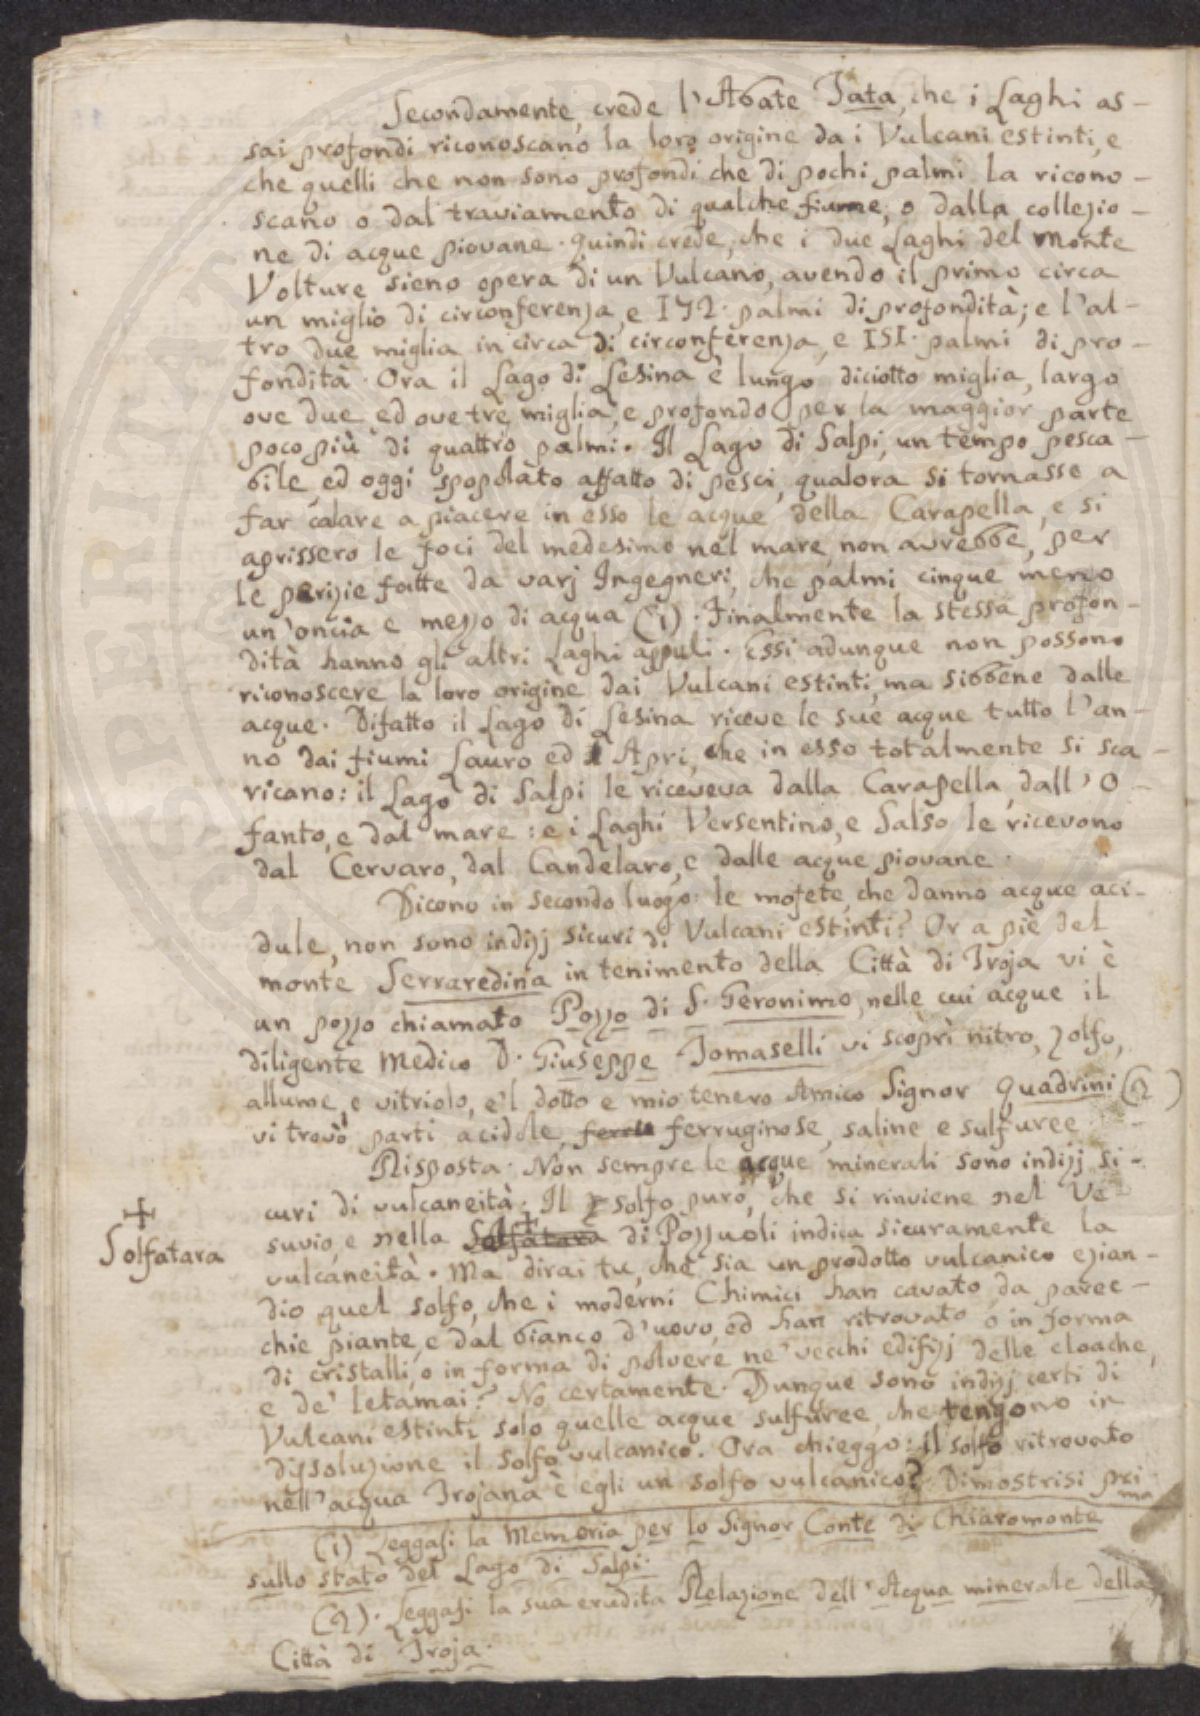 Secondamente, crede l'Abate Tata, che i Laghi as-
sai profondi riconoscano la loro origine da i Vulcani estinti, e
che quelli che non sono profondi che di pochi palmi la ricono-
scano o dal traviamento di qualche fiume, o dalla collezio-
ne di acque piovane. Quindi crede, che i due Laghi del Monte
Volture sieno opera di un Vulcano, avendo il primo circa
un miglio di circonferenza, e 172. palmi di profondità; e l'al-
tro due miglia in circa di circonferenza, e 151. palmi di pro-
fondità. Ora il Lago di Lesina è lungo diciotto miglia, largo
ove due, ed ove tre miglia, e profondo per la maggior parte
poco più di quattro palmi. Il Lago di Salpi, un tempo pesca-
bile, ed oggi spopolato affatto di pesci, qualora si tornasse a
far calare a piacere in esso le acque della Carapella, e si
aprissero le foci del medesimo nel mare, non avrebbe, per
le perizie fatte da varj Ingegneri, che palmi cinque meno
un'oncia e mezzo di acqua (1). Finalmente la stessa profon-
dità hanno gli altri Laghi appuli. Essi adunque non possono
riconoscere la loro origine dai Vulcani estinti, ma sibbene dalle
acque. Difatto il Lago di Lesina riceve le sue acque tutto l'an-
no dai fiumi Lauro ed Apri, che in esso totalmente si sca-
ricano: il Lago di Salpi le riceveva dalla Carapella, dall'O-
fanto, e dal mare: e i Laghi Versentino, e Salso le ricevono
dal Cervaro, dal Candelaro, e dalle acque piovane.
Dicono in secondo luogo: le mofete, che danno acque aci-
dule, non sono indizj sicuri di Vulcani estinti? Or a piè del
monte Serraredina in tenimento della Città di Troja vi è
un pozzo chiamato Pozzo di S. Geronimo, nelle cui acque il
diligente Medico D. Giuseppe Tomaselli vi scoprì nitro, zolfo,
allume, e vitriolo, e'l dotto e mio tenero Amico Signor Quadrini (2)
vi trovò parti acidole, ferruginose, saline e sulfuree.
Risposta. Non sempre le acque minerali sono indizj si-
curi di vulcaneità. Il solfo puro, che si rinviene nel Ve-
suvio, e nella Solfatara di Pozzuoli indica sicuramente la
Solfatara
vulcaneità. Ma dirai tu, che sia un prodotto vulcanico ezian-
dio quel solfo, che i moderni Chimici han cavato da parec-
chie piante, e dal bianco d'uovo, ed han ritrovato o in forma
di cristalli, o in forma di polvere ne' vecchi edifizj delle cloache,
e de' letamai? No certamente. Dunque sono indizj certi di
Vulcani estinti solo quelle acque sulfuree, che tengono in
dissoluzione il solfo vulcanico. Ora chieggo: il solfo ritrovato
nell'acqua Trojana è egli un solfo vulcanico? Dimostrisi pri
ma
(1) Leggasi la Memoria per lo Signor Conte di Chiaromonte
sullo stato del Lago di Salpi.
(2). Leggasi la sua erudita Relazione dell'Acqua minerale della
Città di Troja.